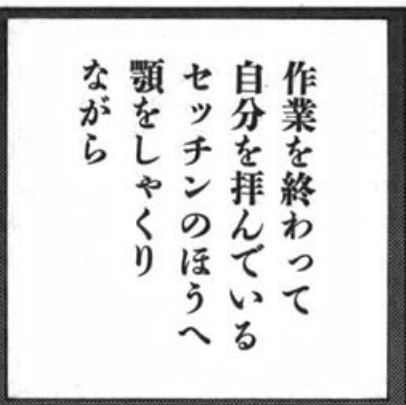 作業を終わって
自分を拝んでいる
セッチンのほうへ
顎をしゃくり
ながら